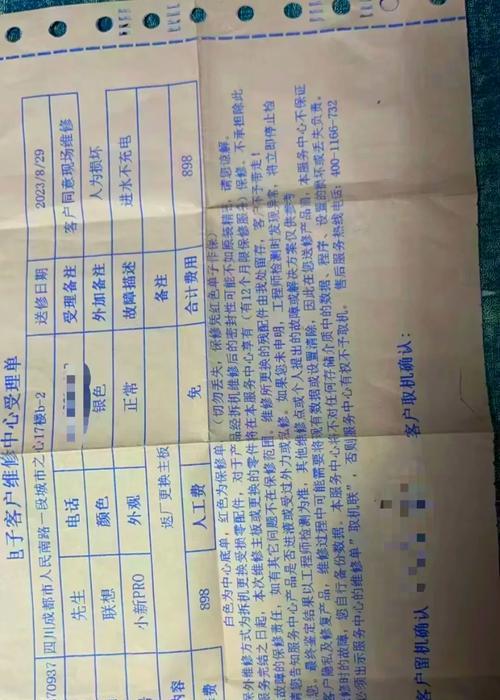 电子客户维修中心受理单
70937 四川成都市人民南路一段城市之心17楼b-2 送修日期 2023/8/29
先生 电话 受理备注 客户同意现场维修
联想 颜色 银色 外加备注 人为损坏
小新PRO 外观 正常 故障描述 进水不充电
内容 返厂更换主板 备注
费 898 人工费 免 合计费用 898
白色为中心底单，红色为保修单（切勿丢失，保修凭红色单子作保）
外维修方式为拆机更换受损零配件，对于产品经拆机维修后的密封性可能不如原装精密，请您谅解。
服务完结之日起，本次维修主板或更换的零件将在本服务中心享有（有12个月限保修服务）保修，不承担除此
故障的保修责任，如有其它问题不在保修范围，维修所更换的残配件由我处留存，客户不予带走！
请您告知服务中心产品是否进液或受过外力或私修。如果您未申明，工程师检测时发现异常，将立即停止检
。最终鉴定结果以工程师检测为准，其他维修点或个人提出的故障或解决方案仅供参考
客户隐私及修复产品，维修过程中可能需要将现有数据或设置清除，因此在您送修产品前，本服务中心不保证
时的故障，您自行备份数据。本服务中心将不对任何存储介质中的数据、程序、设置的损坏或丢失负责。
必须出示服务中心的维修单"取机联"，否则服务中心有权不予取机。 售后服务热线电话：400-1166-732
客户留机确认 客户取机确认：